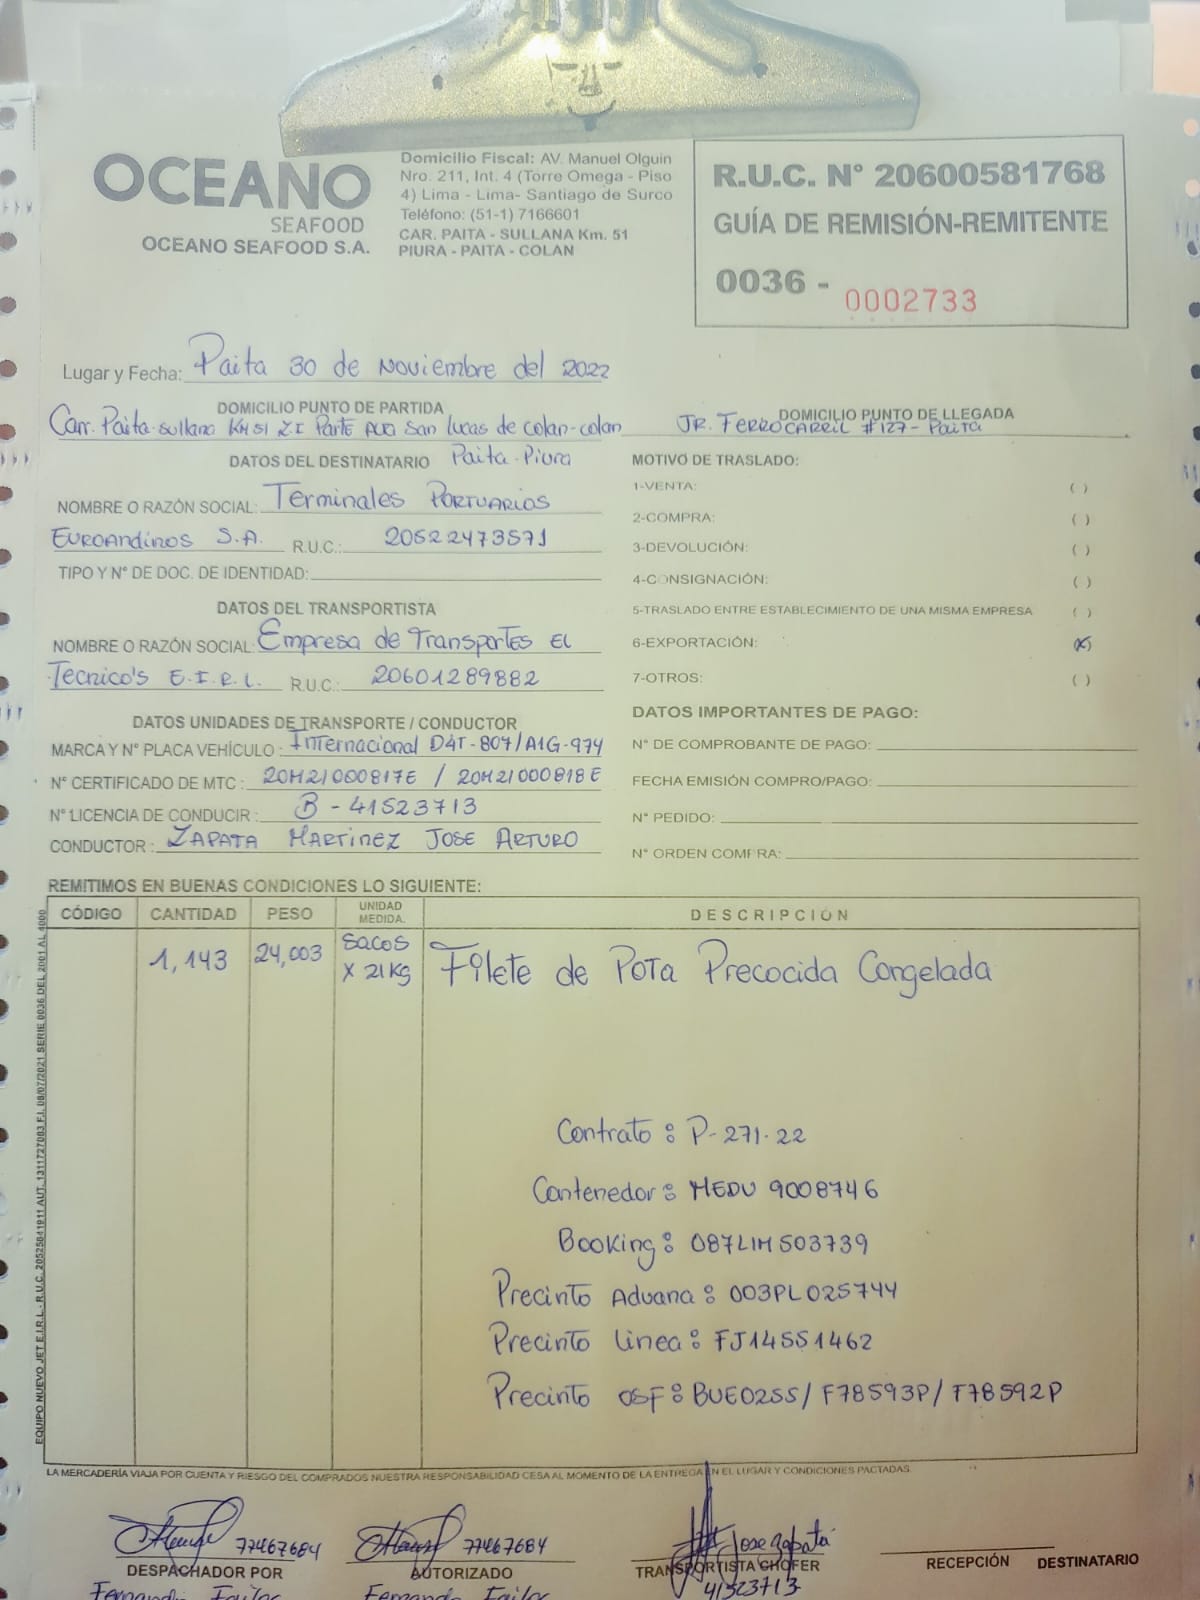 OCEANO
SEAFOOD
OCEANO SEAFOOD S.A.
Domicilio Fiscal: AV. Manuel Olguin
Nro. 211, Int. 4 (Torre Omega - Piso
4) Lima - Lima- Santiago de Surco
Teléfono: (51-1) 7166601
CAR. PAITA - SULLANA Km. 51
PIURA - PAITA - COLAN
R.U.C. N° 20600581768
GUÍA DE REMISIÓN-REMITENTE
0036 - 0002733
Lugar y Fecha: Paita 30 de Noviembre del 2022
DOMICILIO PUNTO DE PARTIDA
Carr. Paita-sullana KM51 ZI Parte San Lucas de colan-colan
Paita-Piura
DOMICILIO PUNTO DE LLEGADA
JR. FERROCARRIL #127- Paita
DATOS DEL DESTINATARIO
NOMBRE O RAZÓN SOCIAL: Terminales PORTUARIOS
EUROAndinos S.A. R.U.C.: 20522473571
TIPO Y N° DE DOC. DE IDENTIDAD:
DATOS DEL TRANSPORTISTA
NOMBRE O RAZÓN SOCIAL: Empresa de Transportes El
Tecnico's E.I.R.L. R.U.C.: 20601289882
DATOS UNIDADES DE TRANSPORTE / CONDUCTOR
MARCA Y N° PLACA VEHÍCULO: Internacional D4T-807/A1G-974
N° CERTIFICADO DE MTC: 20M21000817E / 20M21000818E
N° LICENCIA DE CONDUCIR: B-41523713
CONDUCTOR: ZAPATA MARTINEZ JOSE ARTURO
MOTIVO DE TRASLADO:
1-VENTA: ( )
2-COMPRA: ( )
3-DEVOLUCIÓN: ( )
4-CONSIGNACIÓN: ( )
5-TRASLADO ENTRE ESTABLECIMIENTO DE UNA MISMA EMPRESA ( )
6-EXPORTACIÓN: (X)
7-OTROS: ( )
DATOS IMPORTANTES DE PAGO:
N° DE COMPROBANTE DE PAGO:
FECHA EMISIÓN COMPRO/PAGO:
N° PEDIDO:
N° ORDEN COMPRA:
REMITIMOS EN BUENAS CONDICIONES LO SIGUIENTE:
CÓDIGO CANTIDAD PESO UNIDAD MEDIDA. DESCRIPCIÓN
1,143 24,003 Sacos X 21Kg Filete de POTA Precocida Congelada
Contrato: P-271-22
Contenedor: MEDU 9008746
Booking: 087LIM503739
Precinto Aduana: 003PL025744
Precinto Linea: FJ14551462
Precinto OSF: BUE0255/ F78593P/ F78592P
EQUIPO NUEVO JET E.I.R.L.- R.U.C. 20525841911 AUT. 1311727003 F.I. 08/07/2021 SERIE 0036 DEL 2001 AL 4000
LA MERCADERÍA VIAJA POR CUENTA Y RIESGO DEL COMPRADOS NUESTRA RESPONSABILIDAD CESA AL MOMENTO DE LA ENTREGA EN EL LUGAR Y CONDICIONES PACTADAS.
77467684
DESPACHADOR POR
77467684
AUTORIZADO
Jose Zapata
TRANSPORTISTA CHOFER
41523713
RECEPCIÓN DESTINATARIO